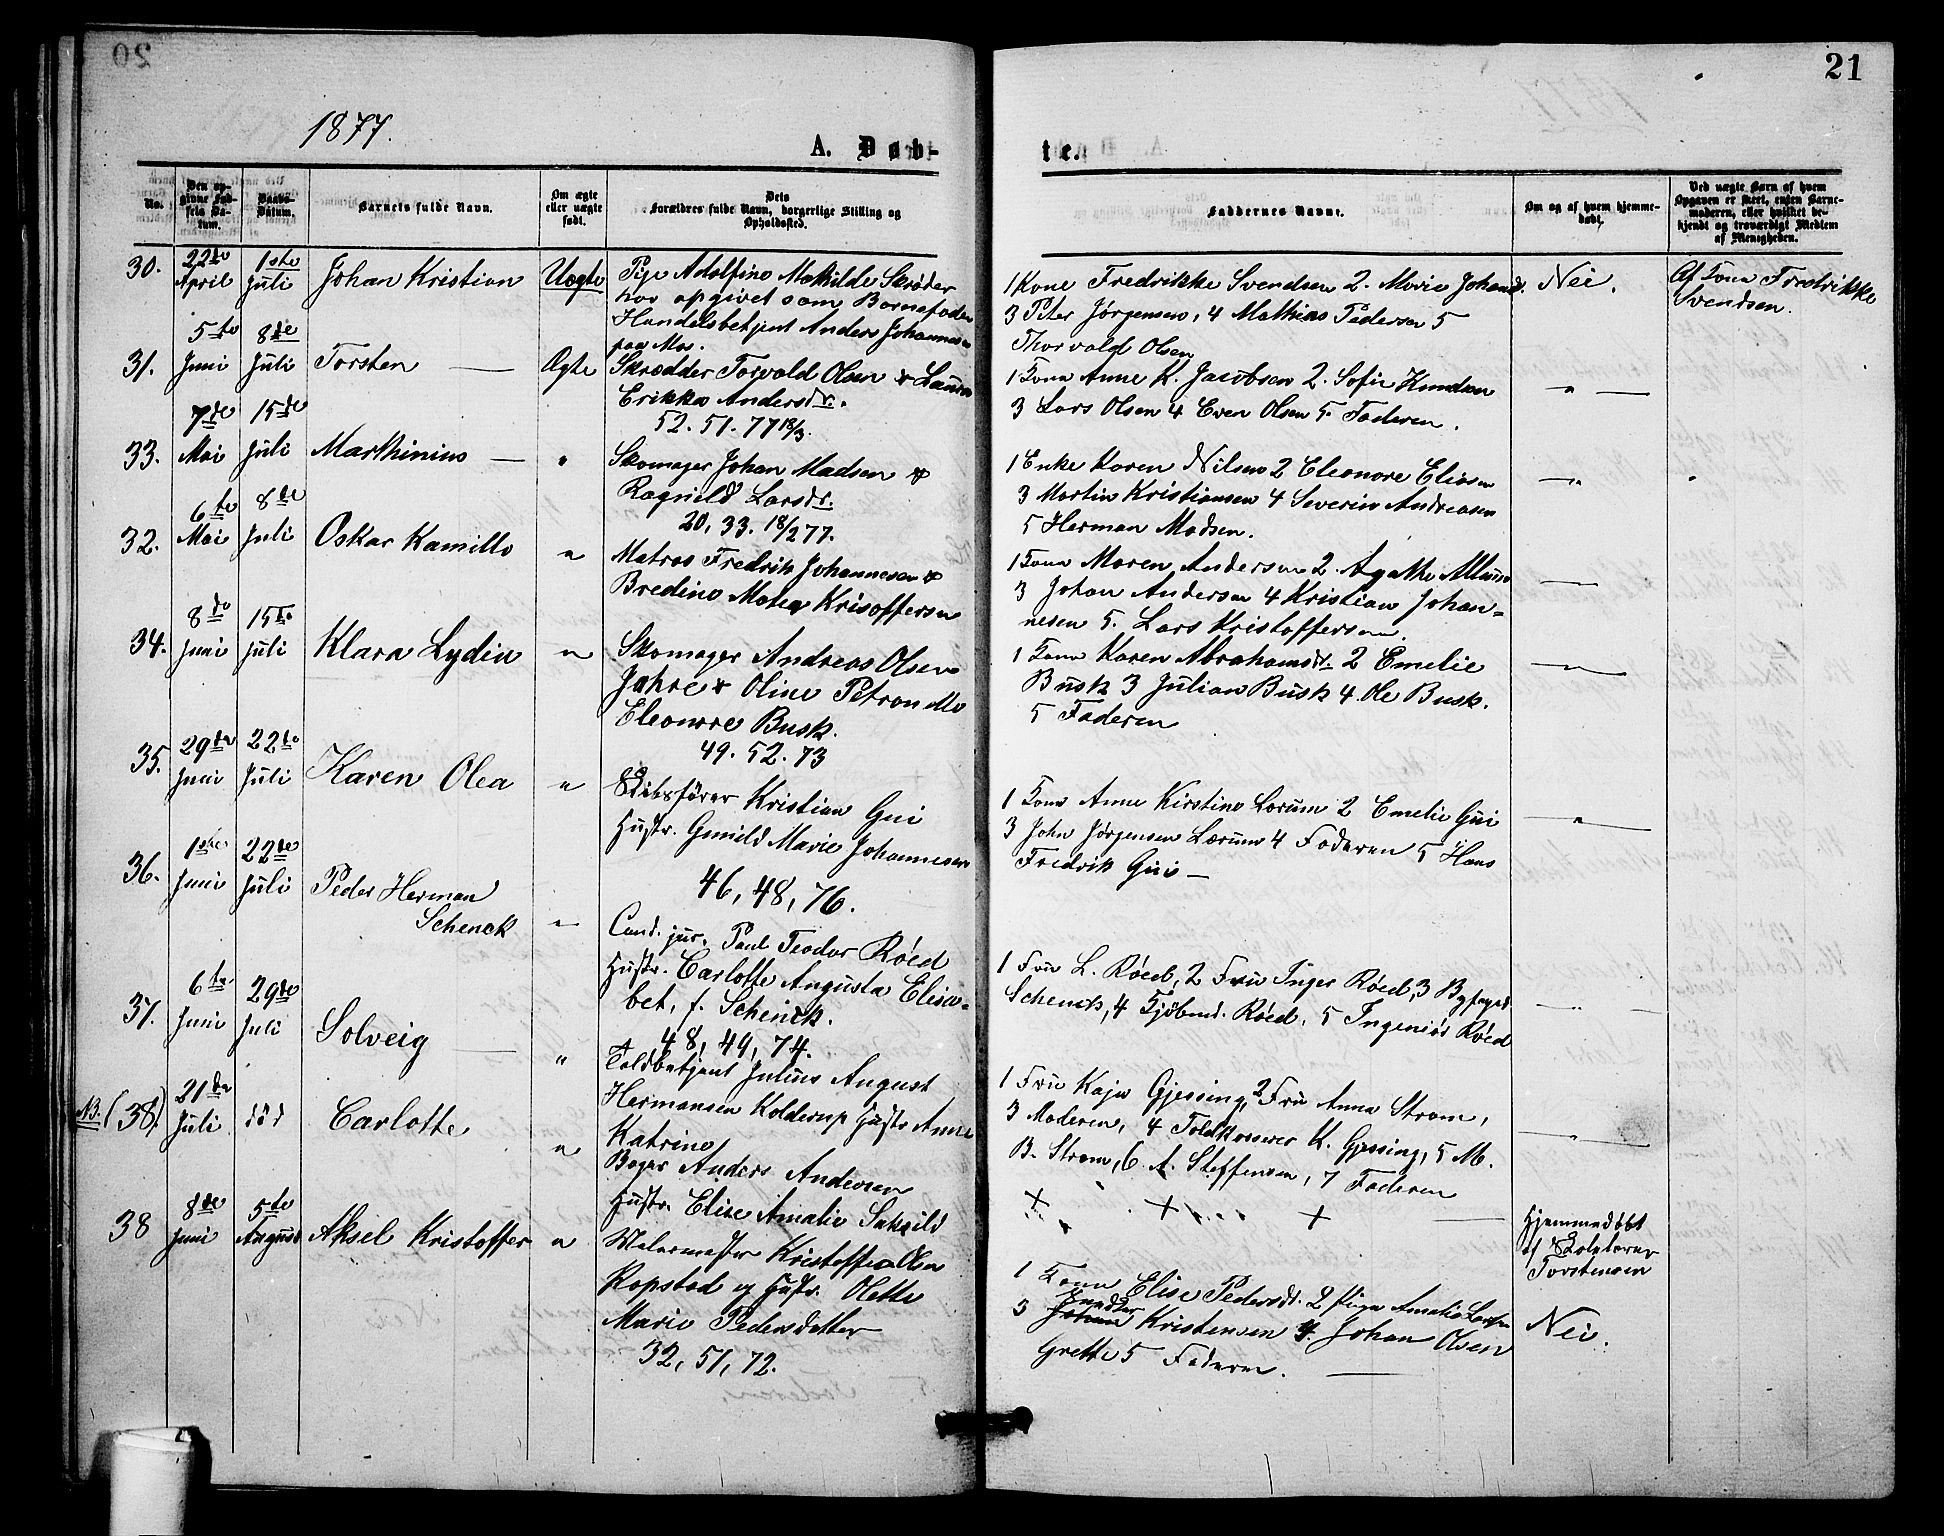 20
21
1877.
A. Døb-
te.
No.
Den op-
givne Fød-
sels Da-
tum.
Daabs-
Datum.
Barnets fulde Navn.
Om ægte
eller uægte
født.
Dets
Forældres fulde Navn, borgerlige Stilling og
Opholdssted.
Faddernes Navne.
Om og af hvem hjemme-
døbt.
Ved uægte Børn af hvem
Opgaven er skeet, enten Barne-
moderen, eller hvilket be-
kjendt og troværdigt Medlem
af Menigheden.
30.
22de
April
1ste
Juli
Johan Kristian
Uægte
Pige Adolfine Mathilde Skrøder
har opgivet som Barnefader
Handelsbetjent Anders Johannesen
paa Mos.
1 Kone Fredrikke Svendsen 2. Marie Johansd.
3 Peter Jørgensen, 4 Mathias Pedersen 5
Thorvald Olsen
Nei.
Af Kona Fredrikke
Svendsen.
31.
5te
Juni
8de
Juli
Torsten —
Ægte
Skrædder Torvald Olsen & Laura
Erikka Andersdr.
52. 51. 77 18/3.
1 Kona Anne K. Jacobsen 2. Sofie Knudsen
3 Lars Olsen 4 Even Olsen 5. Faderen.
" —
33.
7de
Mai
15de
Juli
Marthinius —
"
Skomager Johan Madsen &
Ragnild Larsdr.
20, 33. 18/2 77.
1 Enke Karen Nilsen 2 Eleonore Eliasen
3 Martin Kristiansen 4 Severin Andreasen
5 Herman Madsen.
—"—
32.
6te
Mai
8de
Juli
Oskar Kamillo
"
Matros Fredrik Johannesen &
Bredine Mathea Krisoffersen
1 Kona Maren Andersen 2. Agathe
3 Johan Andersen 4 Kristian Johan-
nesen 5. Lars Kristoffersen.
—"—
34.
8de
Juni
15de
Juli
Klara Lydia
"
Skomager Andreas Olsen
Jahre & Oline Petronelle
Eleonore Busk.
49. 52. 73
1 Kona Karen Abrahamsdr. 2 Emelie
Busk 3 Julian Busk 4. Ole Busk.
5 Faderen
—"—
35.
29de
Juni
22de
Juli
Karen Olea
"
Skibsfører Kristian Gui
Hustr. Gunild Marie Johannesen
46, 48, 76.
1 Kona Anne Kirstine Lorum 2 Emelie Gui
3 John Jørgensen Lærum 4 Faderen 5 Hans
Fredrik Gui —
—"—
36.
1ste
Juni
22de
Juli
Peder Herman
Schenck
"
Cand. jur. Paul Teodor Røed
Hustr. Carlotte Augusta Elisa-
bet, f. Schenck.
48, 49, 74.
1 Fru L. Røed, 2 Fru Inger Røed, 3 Byfoged
Schenck, 4 Kjøbmd. Røed, 5 Ingeniør Røed
—"—
37.
6te
Juni
29de
Juli
Solveig —
"
Toldbetjent Julius August
Hermansen Kolderup Hustr Anne
Katrine
1 Fru Kaja Gjessing, 2 Fru Anna Strøm,
3 Moderen, 4 Toldkasserer K. Gjessing, 5 M.
B. Strøm, 6 A. Steffensen, 7 Faderen
—"—
NB. (38)
21de
Juli
død
Carlotte
"
Bager Anders Andersen
Hustr. Elise Amalie
+ " + " +
Hjemmedøbt
af Skolelærer
Torstensen
38
8de
Juni
5te
August
Aksel Kristoffer
"
Malermester Kristoffer Olsen
Kopstad og Hustr. Olette
Marie Pedersdatter
32, 51, 72.
1 Kona Elise Pedersdr. 2 Pige Amalie Larsen
3 Johan Snedker Kristensen 4. Johan Olsen
Grette 5 Faderen. —
Nei.